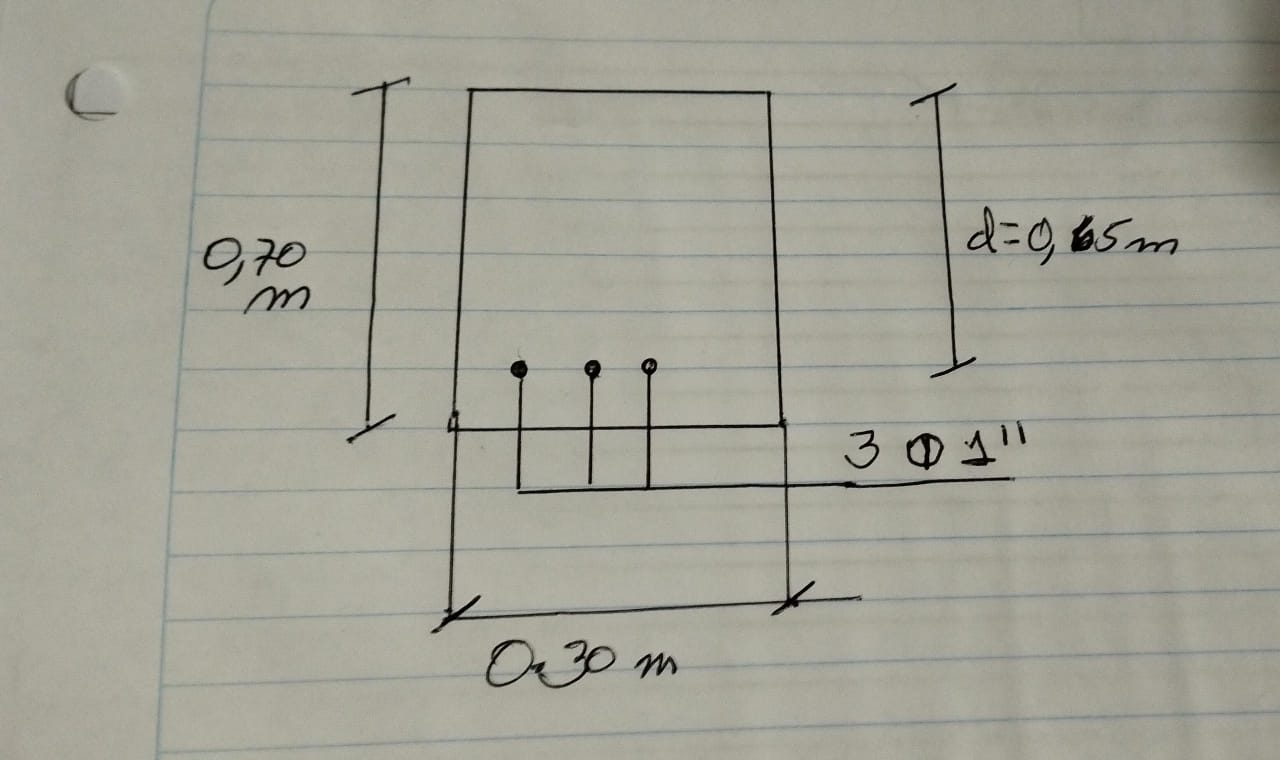 0,70
m
d=0,65m
3 Φ 1"
0.30 m